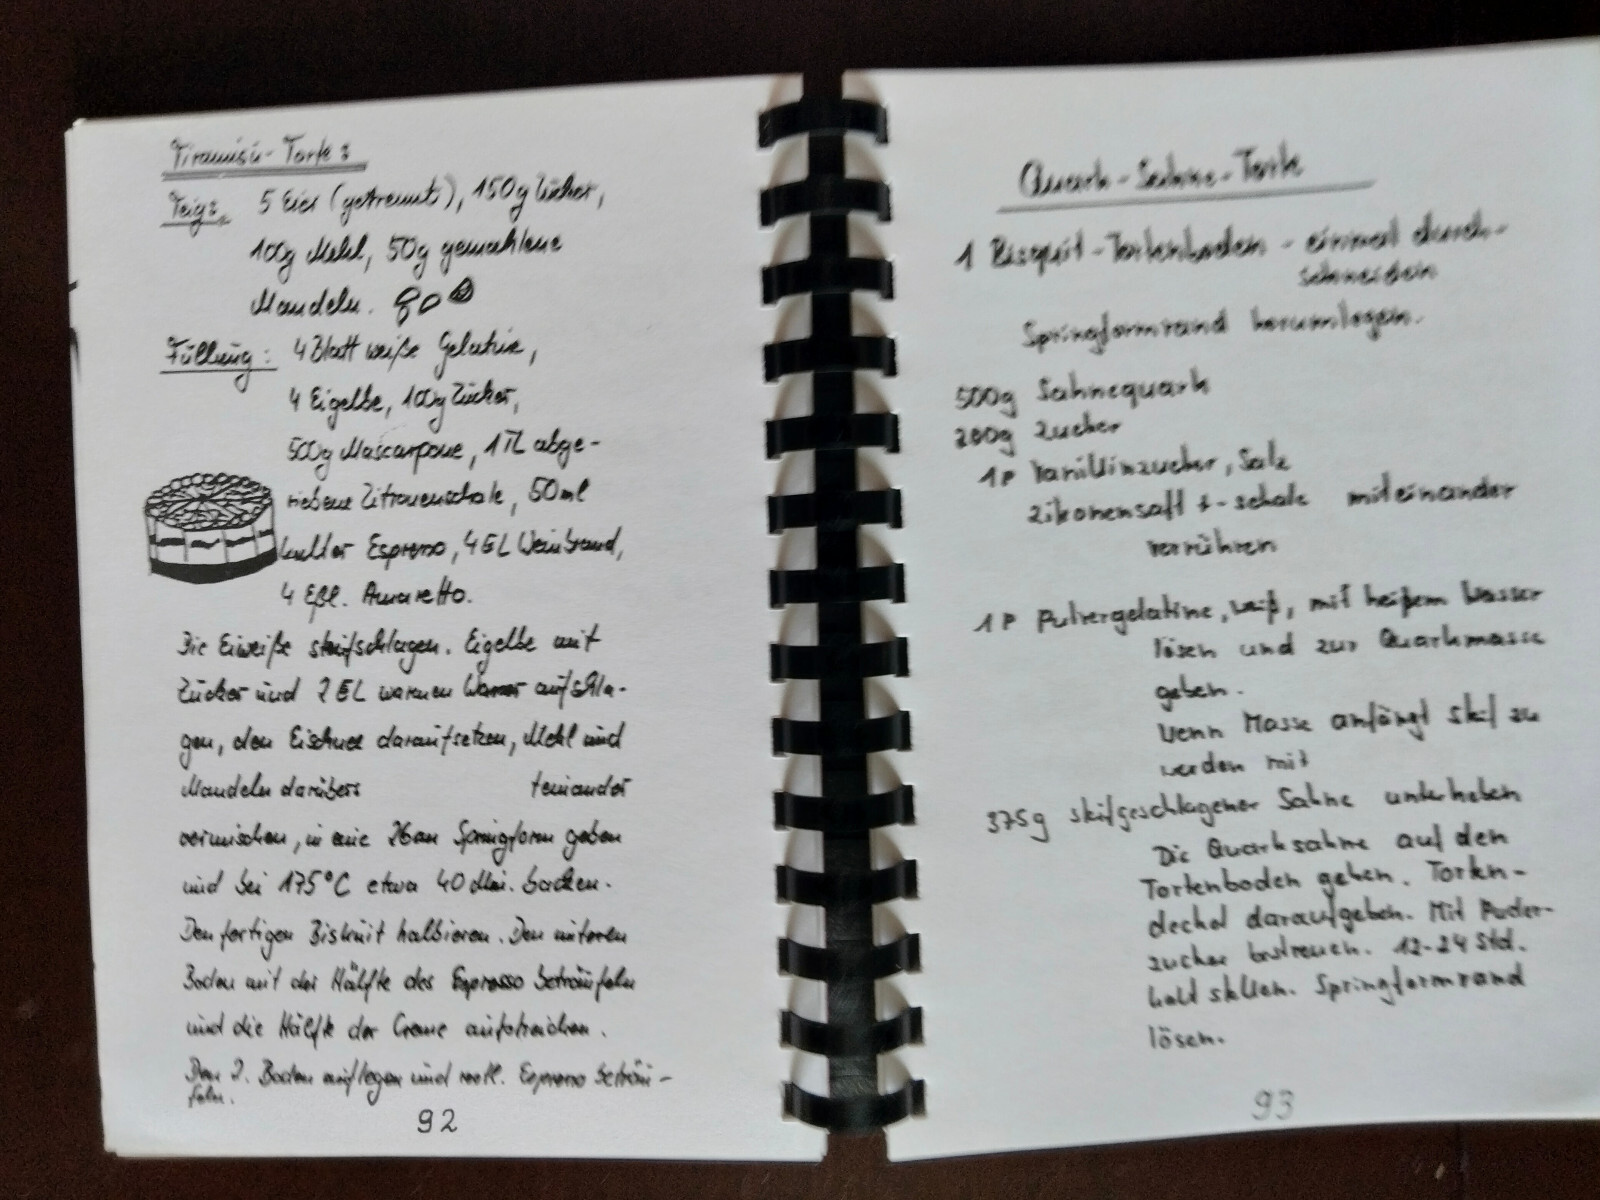 Tiramisu-Torte:
Teig: 5 Eier (getrennt), 150g Zucker,
100g Mehl, 50g gemahlene
Mandeln.
Füllung: 4 Blatt weiße Gelatine,
4 Eigelbe, 100g Zucker,
500g Mascarpone, 1TL abge-
riebene Zitronenschale, 50ml
kalter Espresso, 4EL Weinbrand,
4 Eßl. Amaretto.
Die Eiweiße steifschlagen. Eigelbe mit
Zucker und 2EL warmen Wasser aufschla-
gen, den Eischnee daraufsetzen, Mehl und
Mandeln darübers teinander
vermischen, in eine 26cm Springform geben
und bei 175°C etwa 40 Min. backen.
Den fertigen Biskuit halbieren. Den unteren
Boden mit der Hälfte des Espresso beträufeln
und die Hälfte der Creme aufstreichen.
Den 2. Boden auflegen und restl. Espresso beträu-
feln.
92
Quark-Sahne-Torte
1 Bisquit-Tortenboden - einmal durch-
schneiden
Springformrand herumlegen.
500g Sahnequark
200g Zucker
1P Vanillinzucker, Salz
Zitronensaft + -schale miteinander
verrühren
1P Pulvergelatine, weiß, mit heißem Wasser
lösen und zur Quarkmasse
geben.
Wenn Masse anfängt steif zu
werden mit
375g steifgeschlagener Sahne unterheben
Die Quarksahne auf den
Tortenboden geben. Torten-
deckel daraufgeben. Mit Puder-
zucker bestreuen. 12-24 Std.
kalt stellen. Springformrand
lösen.
93